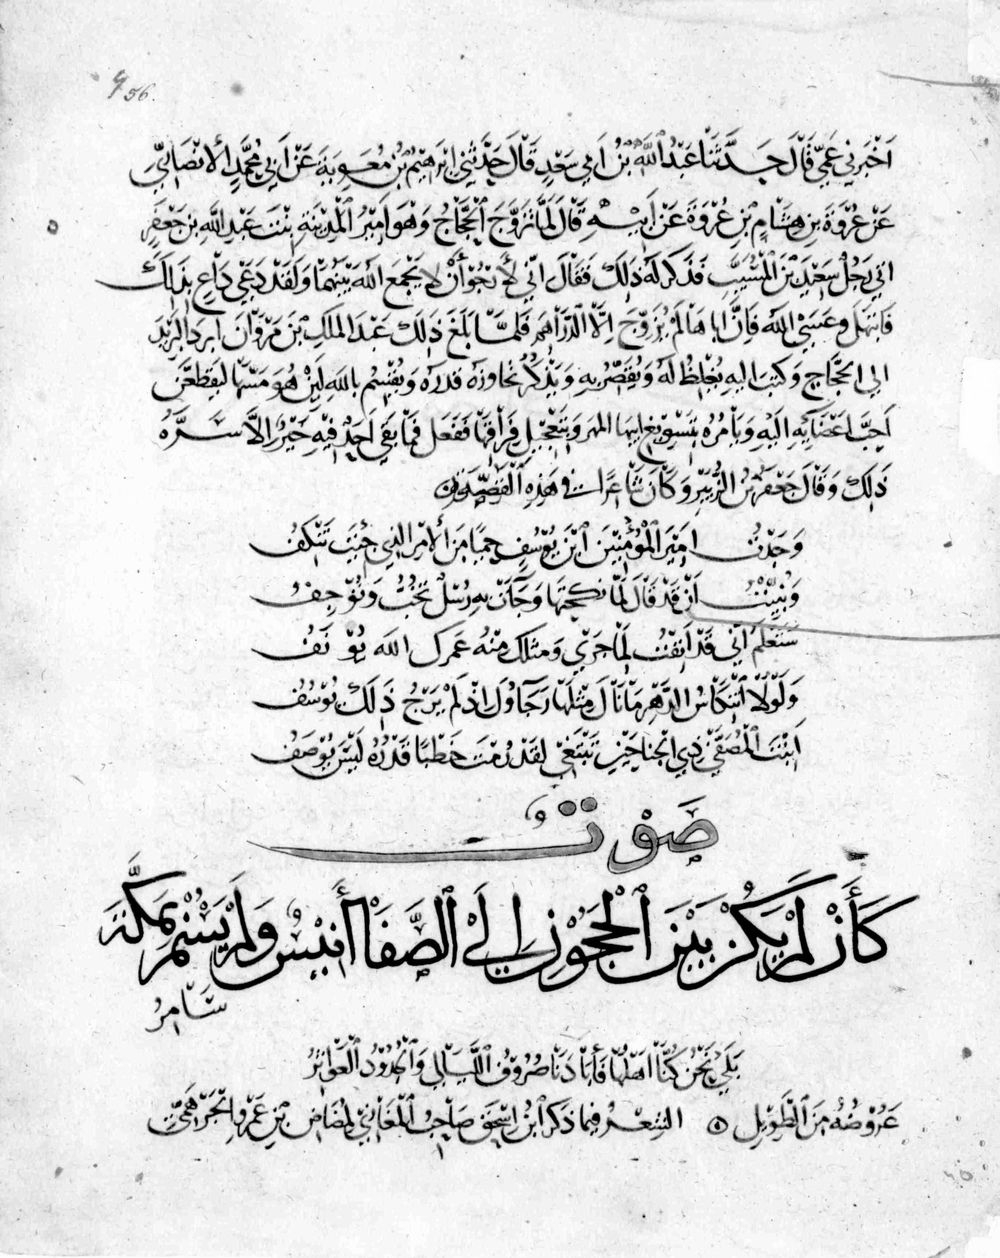 956.
اخبرني عمي قال حدثنا عبد الله بن ابي سعد قال حدثني ابرهيم بن معوية عن ابي محمد الانصاري
عن عروة بن هشام بن عروة عن ابيه قال لما تزوج الحجاج وهو امير المدينة بنت عبد الله بن جعفر
اتى رجل سعيد بن المسيب فذكر له ذلك فقال اني لارجو أن لا يجمع الله بينهما ولقد دعى داع بذلك
فابتهل وعسى الله فإن اباها لم يزوج الا الدراهم فلما بلغ ذلك عبد الملك بن مروان ابرد البريد
الى الحجاج وكتب اليه يغلظ له ويقصر به ويذكر تجاوزه قدره ويقسم بالله لين هو مسها ليقطعن
احب اعضايه اليه ويأمره بتسويغ ابيها المهر وبتعجيل فراقها ففعل فما بقي احد فيه خير الا سره
ذلك وقال جعفر بن الزبير وكان شاعرا في هذه القصة
وجدت امير المؤمنين ابن يوسف حميا من الأمر الذي جئت تنكف
ونبئت ان قد قال لما نكحتها وجآت به رسل تخب وتوجف
ستعلم اني قد انفت لما جرى ومثلك منه عمرك الله يونف
ولولا انتكاس الدهر ما نال مثلها رجاؤك اذ لم يرج ذلك يوسف
ابنت المصفى ذي الجناحين تبتغي لقد رمت خطبا قدره ليس يوصف
صوت
كأن لم يكن بين الحجون إلى الصفا أنيس ولم يسمر بمكة
سامر
بلى نحن كنا اهلها فأبادنا صروف الليالي والجدود العواثر
عروضه من الطويل ٥ الشعر فيما ذكر ابن اسحق صاحب المغازي لمضاض بن عمرو الجرهمي